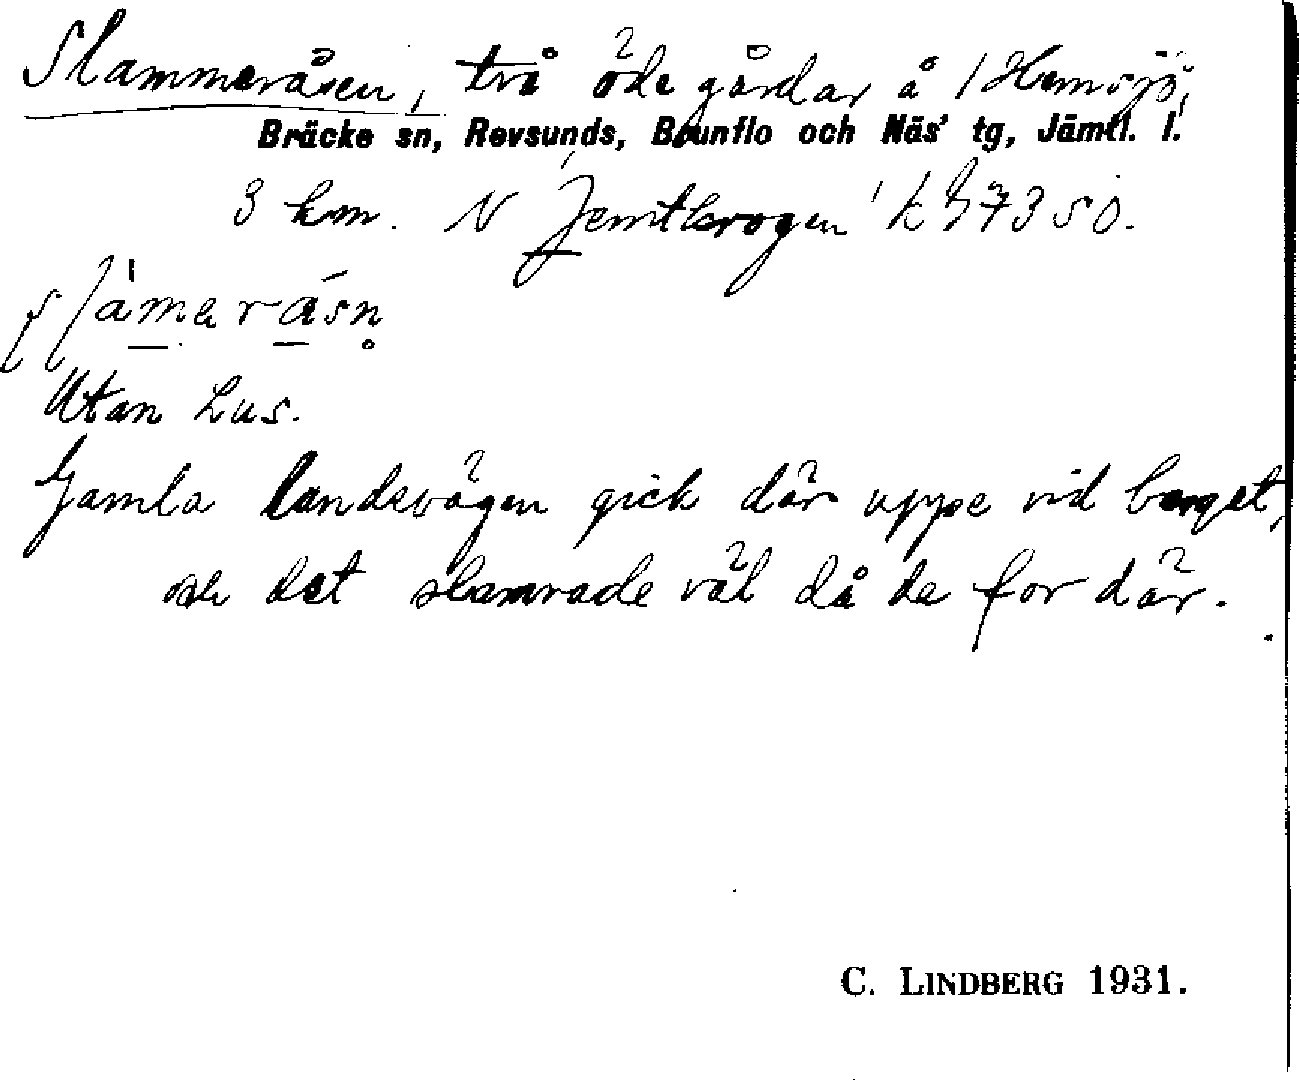 Slammeråsen, två öde gårdar å / Hemsjö,
Bräcke sn, Revsunds, Brunflo och Näs' tg, Jämtl. l.
3 km. N Jemtkrogen
Utan hus.
Gamla landsvägen gick där uppe vid berget,
och det slamrade väl då de for där.
C. LINDBERG 1931.